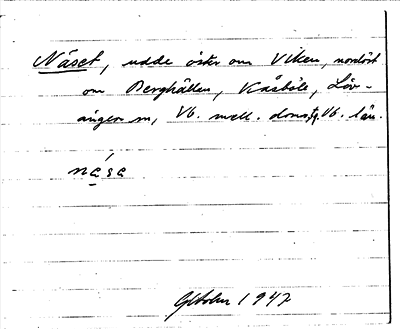 Näset, udde öster om Viken, nordöst
om Berghällen, Kåsböle, Löv-
ånger sn, Vb. mell. domsg. Vb. län.
nåsa
1942